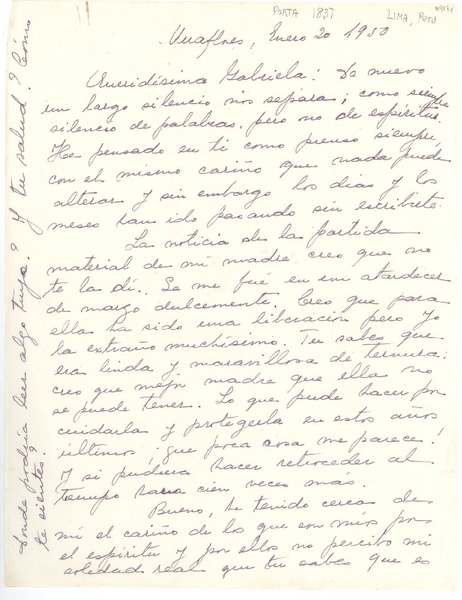 PORTA 1837
LIMA, PERU
Miraflores, Enero 20 1950
Queridísima Gabriela: De nuevo
un largo silencio nos separa; como siempre
silencio de palabras, pero no de espíritus.
He pensado en ti como pienso siempre,
con el mismo cariño que nada puede
alterar y sin embargo los días y los
meses han ido pasando sin escribirte.
La noticia de la partida
material de mi madre creo que no
te la dí. Se me fué en un atardecer
de marzo dulcemente. Creo que para
ella ha sido una liberación pero yo
la extraño muchísimo. Tu sabes que
era linda y maravillosa de ternura:
creo que mejor madre que ella no
se puede tener. Lo que pude hacer por
cuidarla y protegerla en estos años
últimos, ¡que poca cosa me parece!
Y si pudiera hacer retroceder al
tiempo haría cien veces mas.
Bueno, he tenido cerca de
mí el cariño de los que son míos por
el espíritu y por ellos no percibo mi
soledad real que tu sabes que es
donde podría leer algo tuyo? Y tu salud? Cómo
te sientes?